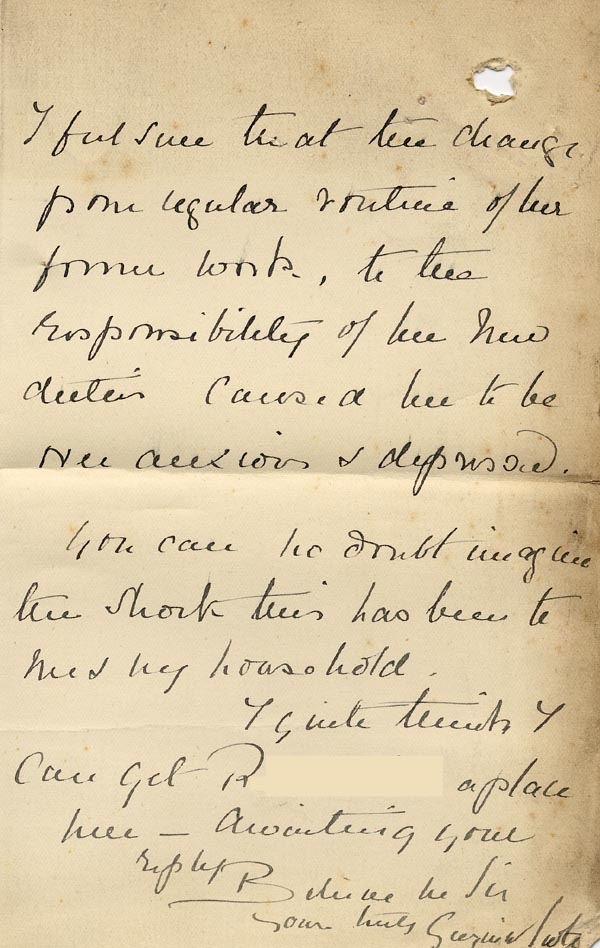 I feel sure that the change
from regular routine of her
former work, to the
responsibility of her new
duties caused her to be
over anxious & depressed.
You can no doubt imagine
the shock this has been to
me & my household.
I quite think I
can get R a place
here – Awaiting your
reply
Believe me Sir
yours truly